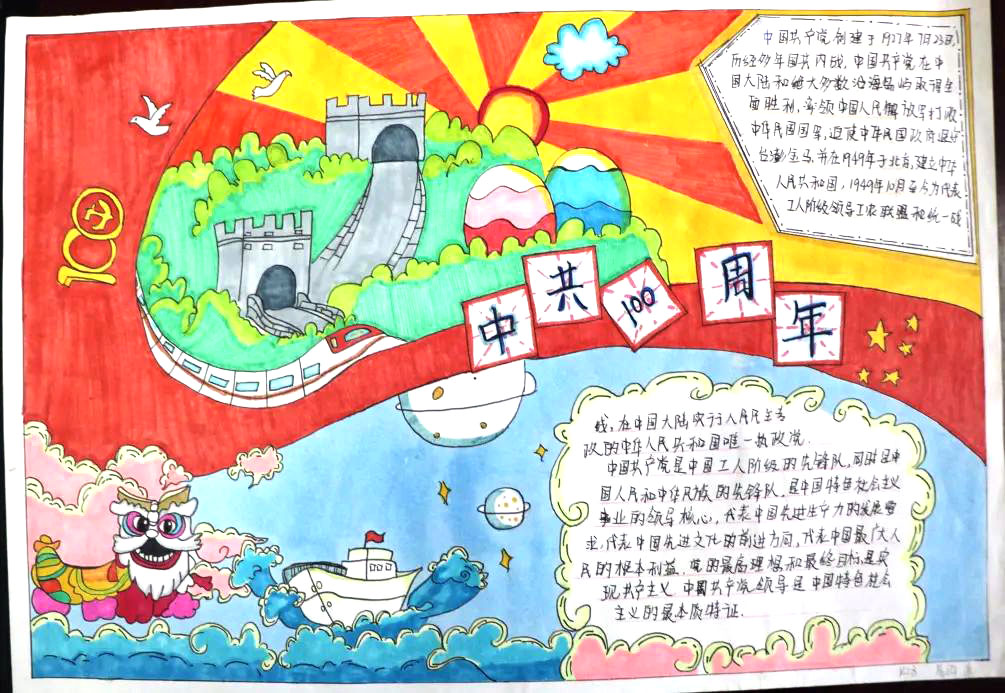 100
中国共产党创建于1927年7月23日,
历经多年国共内战,中国共产党在中
国大陆和绝大多数沿海岛屿取得全
面胜利,率领中国人民解放军打败
中华民国国军,迫使中华民国政府退守
台澎金马,并在1949年于北京,建立中华
人民共和国,1949年10月至今为代表
工人阶级领导工农联盟和统一战
中共100周年
线,在中国大陆实行人民民主专
政的中华人民共和国唯一执政党.
中国共产党是中国工人阶级的先锋队,同时是中
国人民和中华民族的先锋队,是中国特色社会主义
事业的领导核心,代表中国先进生产力的发展要
求,代表中国先进文化的前进方向,代表中国最广大人
民的根本利益.党的最高理想和最终目标是实
现共产主义.中国共产党领导是中国特色社会
主义的最本质特征.